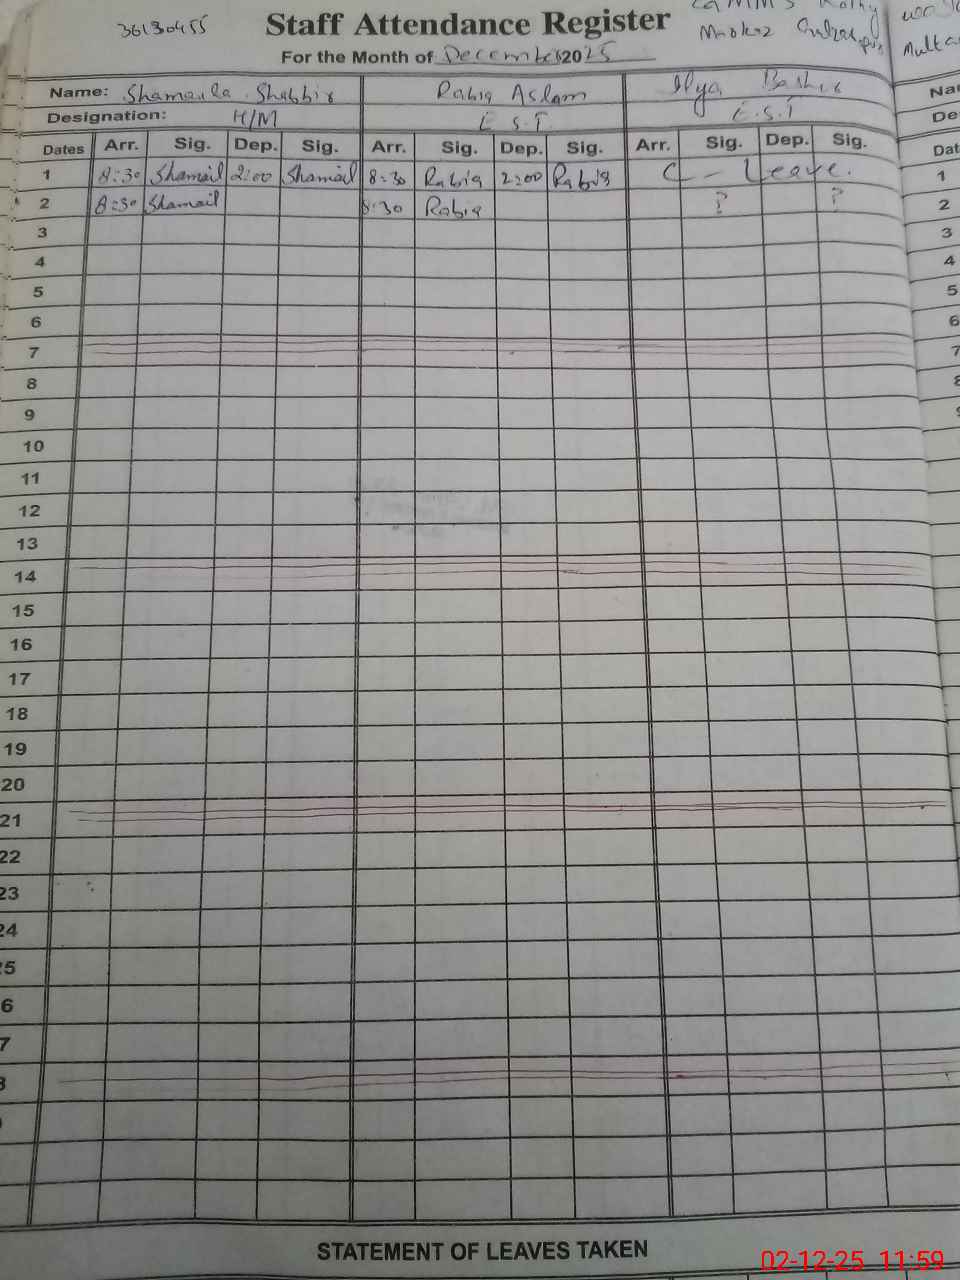 36130455
Staff Attendance Register
For the Month of December 2025
Name: Shamaila Shabbir Rabia Aslam Ilya Bashir
Designation: H/M E.S.T. E.S.T
Dates Arr. Sig. Dep. Sig. Arr. Sig. Dep. Sig. Arr. Sig. Dep. Sig.
1 8:30 Shamail 2:00 Shamail 8:30 Rabia 2:00 Rabia C - Leave. 1
2 8:30 Shamail 8:30 Rabia ? ? 2
3 3
4 4
5 5
6 6
7 7
8
9
10
11
12
13
14
15
16
17
18
19
20
21
22
23
24
25
STATEMENT OF LEAVES TAKEN
02-12-25 11:59